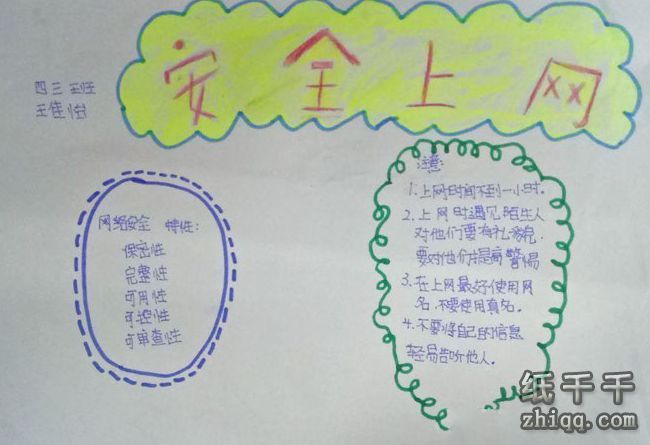 安全上网
四三班
王佳怡
网络安全 特性：
保密性
完整性
可用性
可控性
可审查性
注意：
1.上网时间不到一小时.
2.上网时遇见陌生人
对他们要有礼貌.
要对他们提高警惕
3.在上网最好使用网
名.不要使用真名.
4.不要将自己的信息
轻易告听他人.
纸千千
zhiqq.com